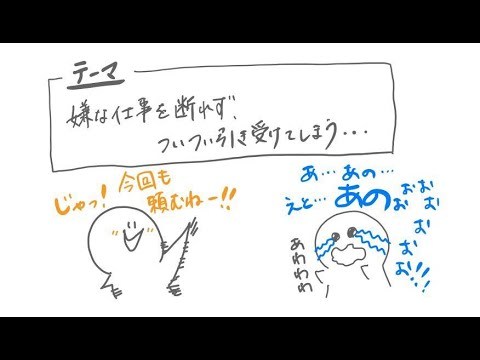 テーマ
嫌な仕事を断れず、
ついつい引き受けてしまう...
じゃっ!今回も
頼むねー!!
あ…あの…
えと…あのぉぉぉぉぉぉぉ!!!
あわわわ